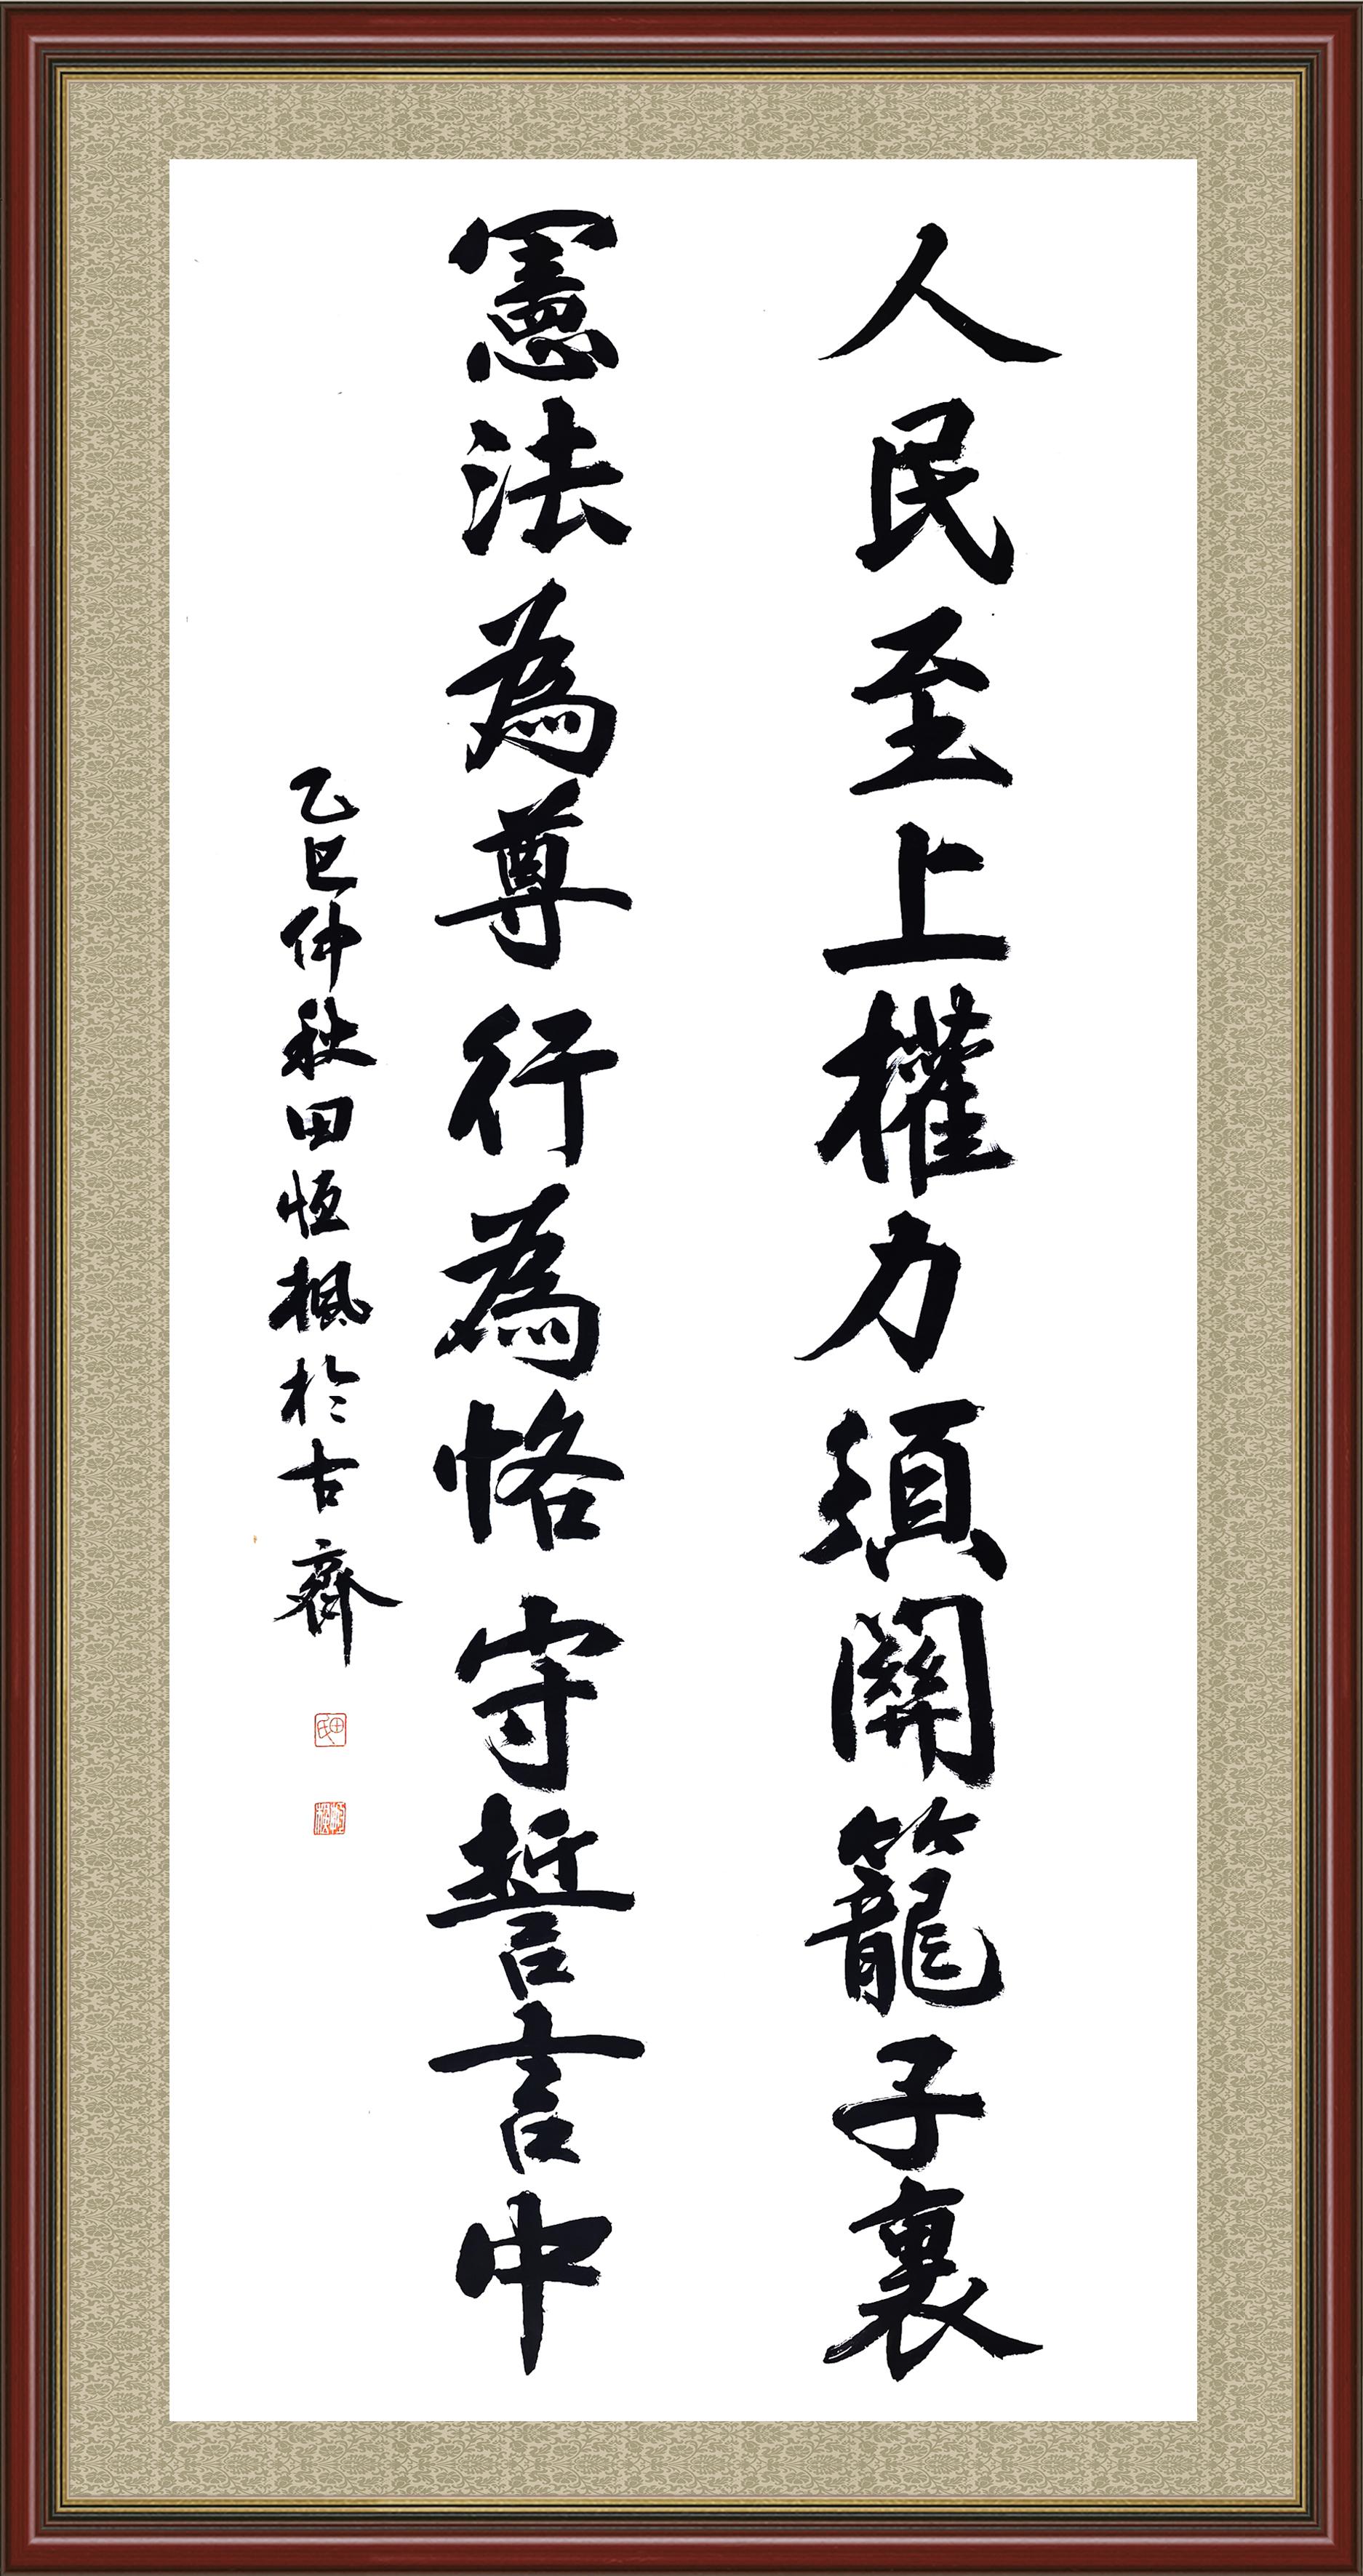 人民至上權力須關籠子裏
憲法為尊行為恪守誓言中
乙巳仲秋田恒楓於古齊
田氏